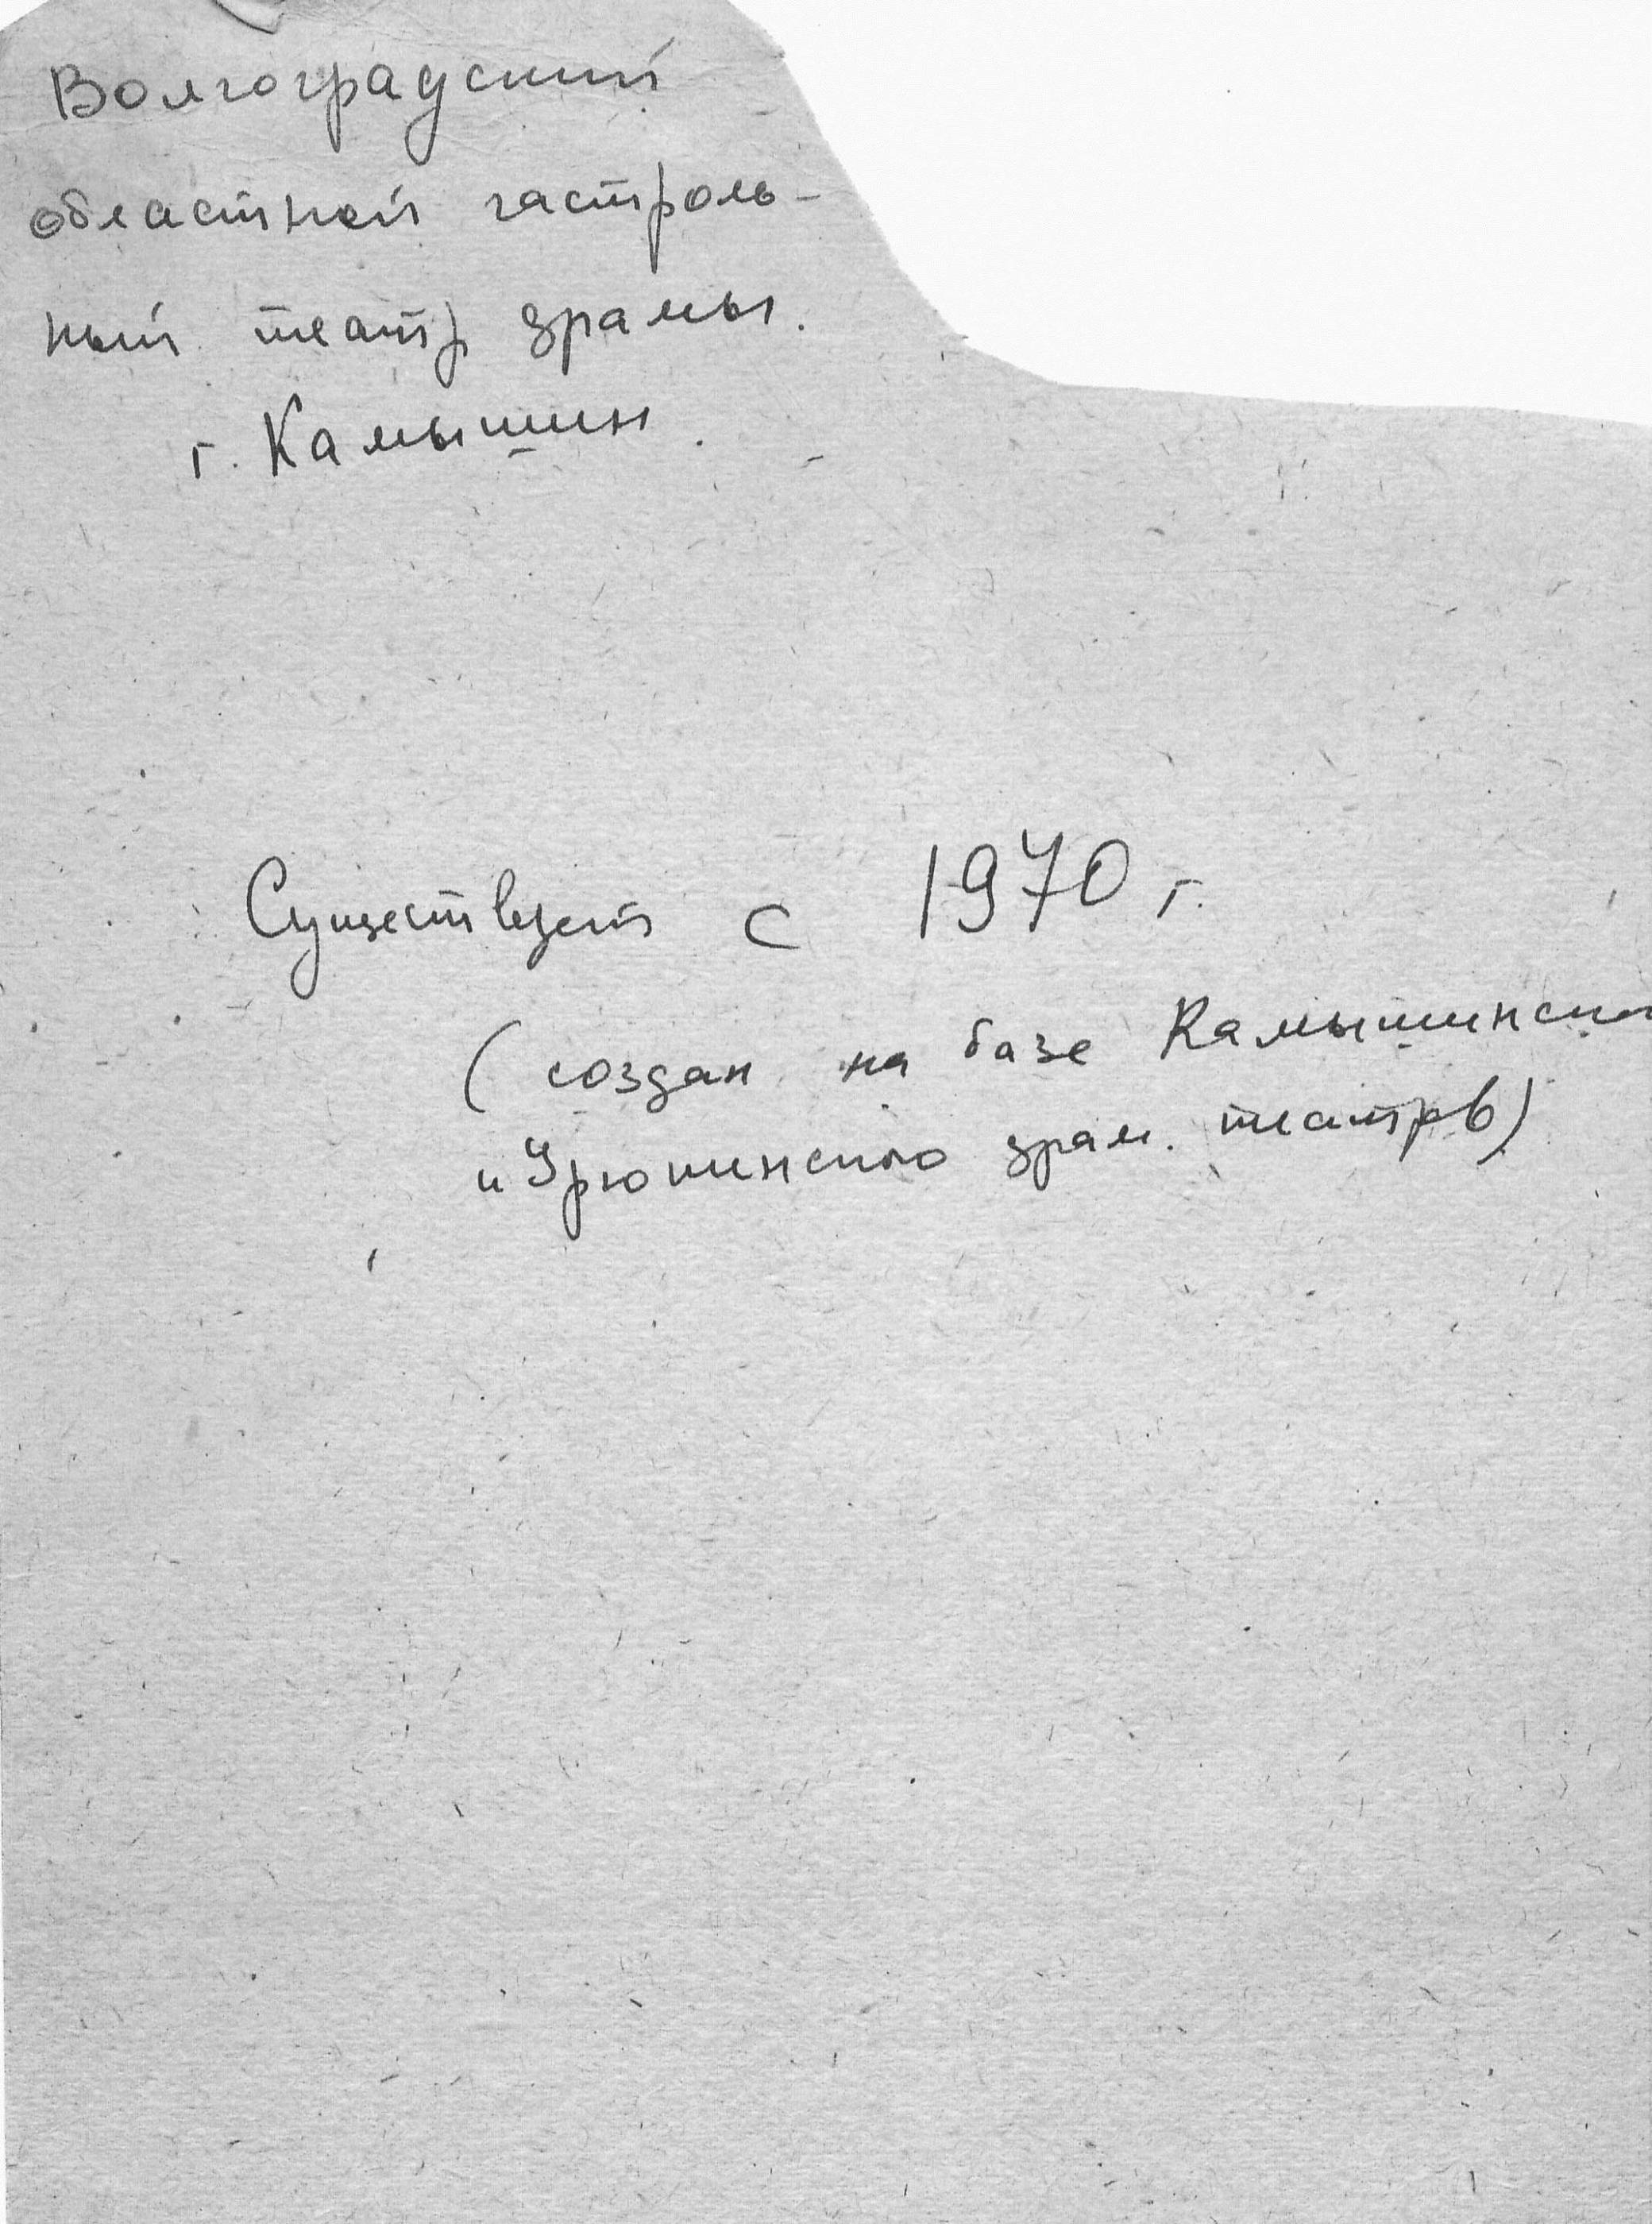 Волгоградский
областной гастроль-
ный театр драмы.
г. Камышин.
Существует с 1970 г.
(создан на базе Камышинско
и Урюпинского драм. театров)